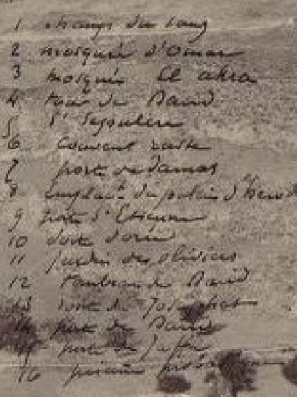 1 champ du sang
2 mosquée d'Omar
3 mosquée El aksa
4 tour de David
5 St Sepulcre
6 Couvent russe
7 porte de Damas
8 Emplact du palais d'Herode
9 Porte St Etienne
10 porte dorée
11 jardin des oliviers
12 Tombeau de David
13 de Josaphat
14 porte de David
15 porte de Jaffa
16 piscine probatique